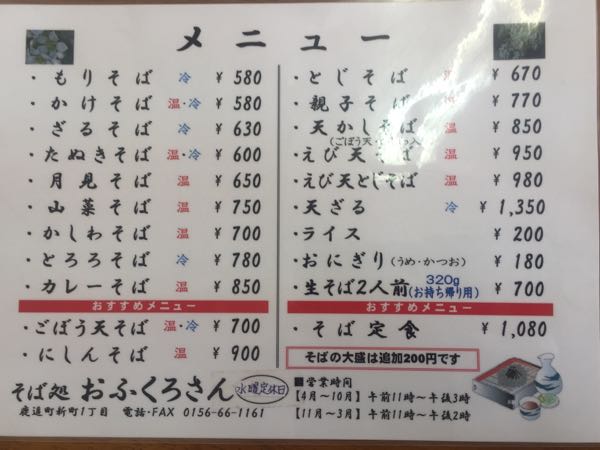 メニュー
・もりそば 冷 ¥580
・かけそば 温・冷 ¥580
・ざるそば 冷 ¥630
・たぬきそば 温・冷 ¥600
・月見そば 温 ¥650
・山菜そば 温 ¥750
・かしわそば 温 ¥700
・とろろそば 冷 ¥780
・カレーそば 温 ¥850
おすすめメニュー
・ごぼう天そば 温・冷 ¥700
・にしんそば 温 ¥900
・とじそば 温 ¥670
・親子そば 温 ¥770
・天かしそば 温 ¥850
(ごぼう天・
・えび天そば 温 ¥950
・えび天とじそば 温 ¥980
・天ざる 冷 ¥1,350
・ライス ¥200
・おにぎり(うめ・かつお) ¥180
・生そば2人前 320g (お持ち帰り用) ¥700
おすすめメニュー
・そば定食 ¥1,080
そばの大盛は追加200円です
そば処 おふくろさん 水曜定休日
鹿追町新町1丁目 電話・FAX 0156-66-1161
■営業時間
【4月〜10月】午前11時〜午後3時
【11月〜3月】午前11時〜午後2時